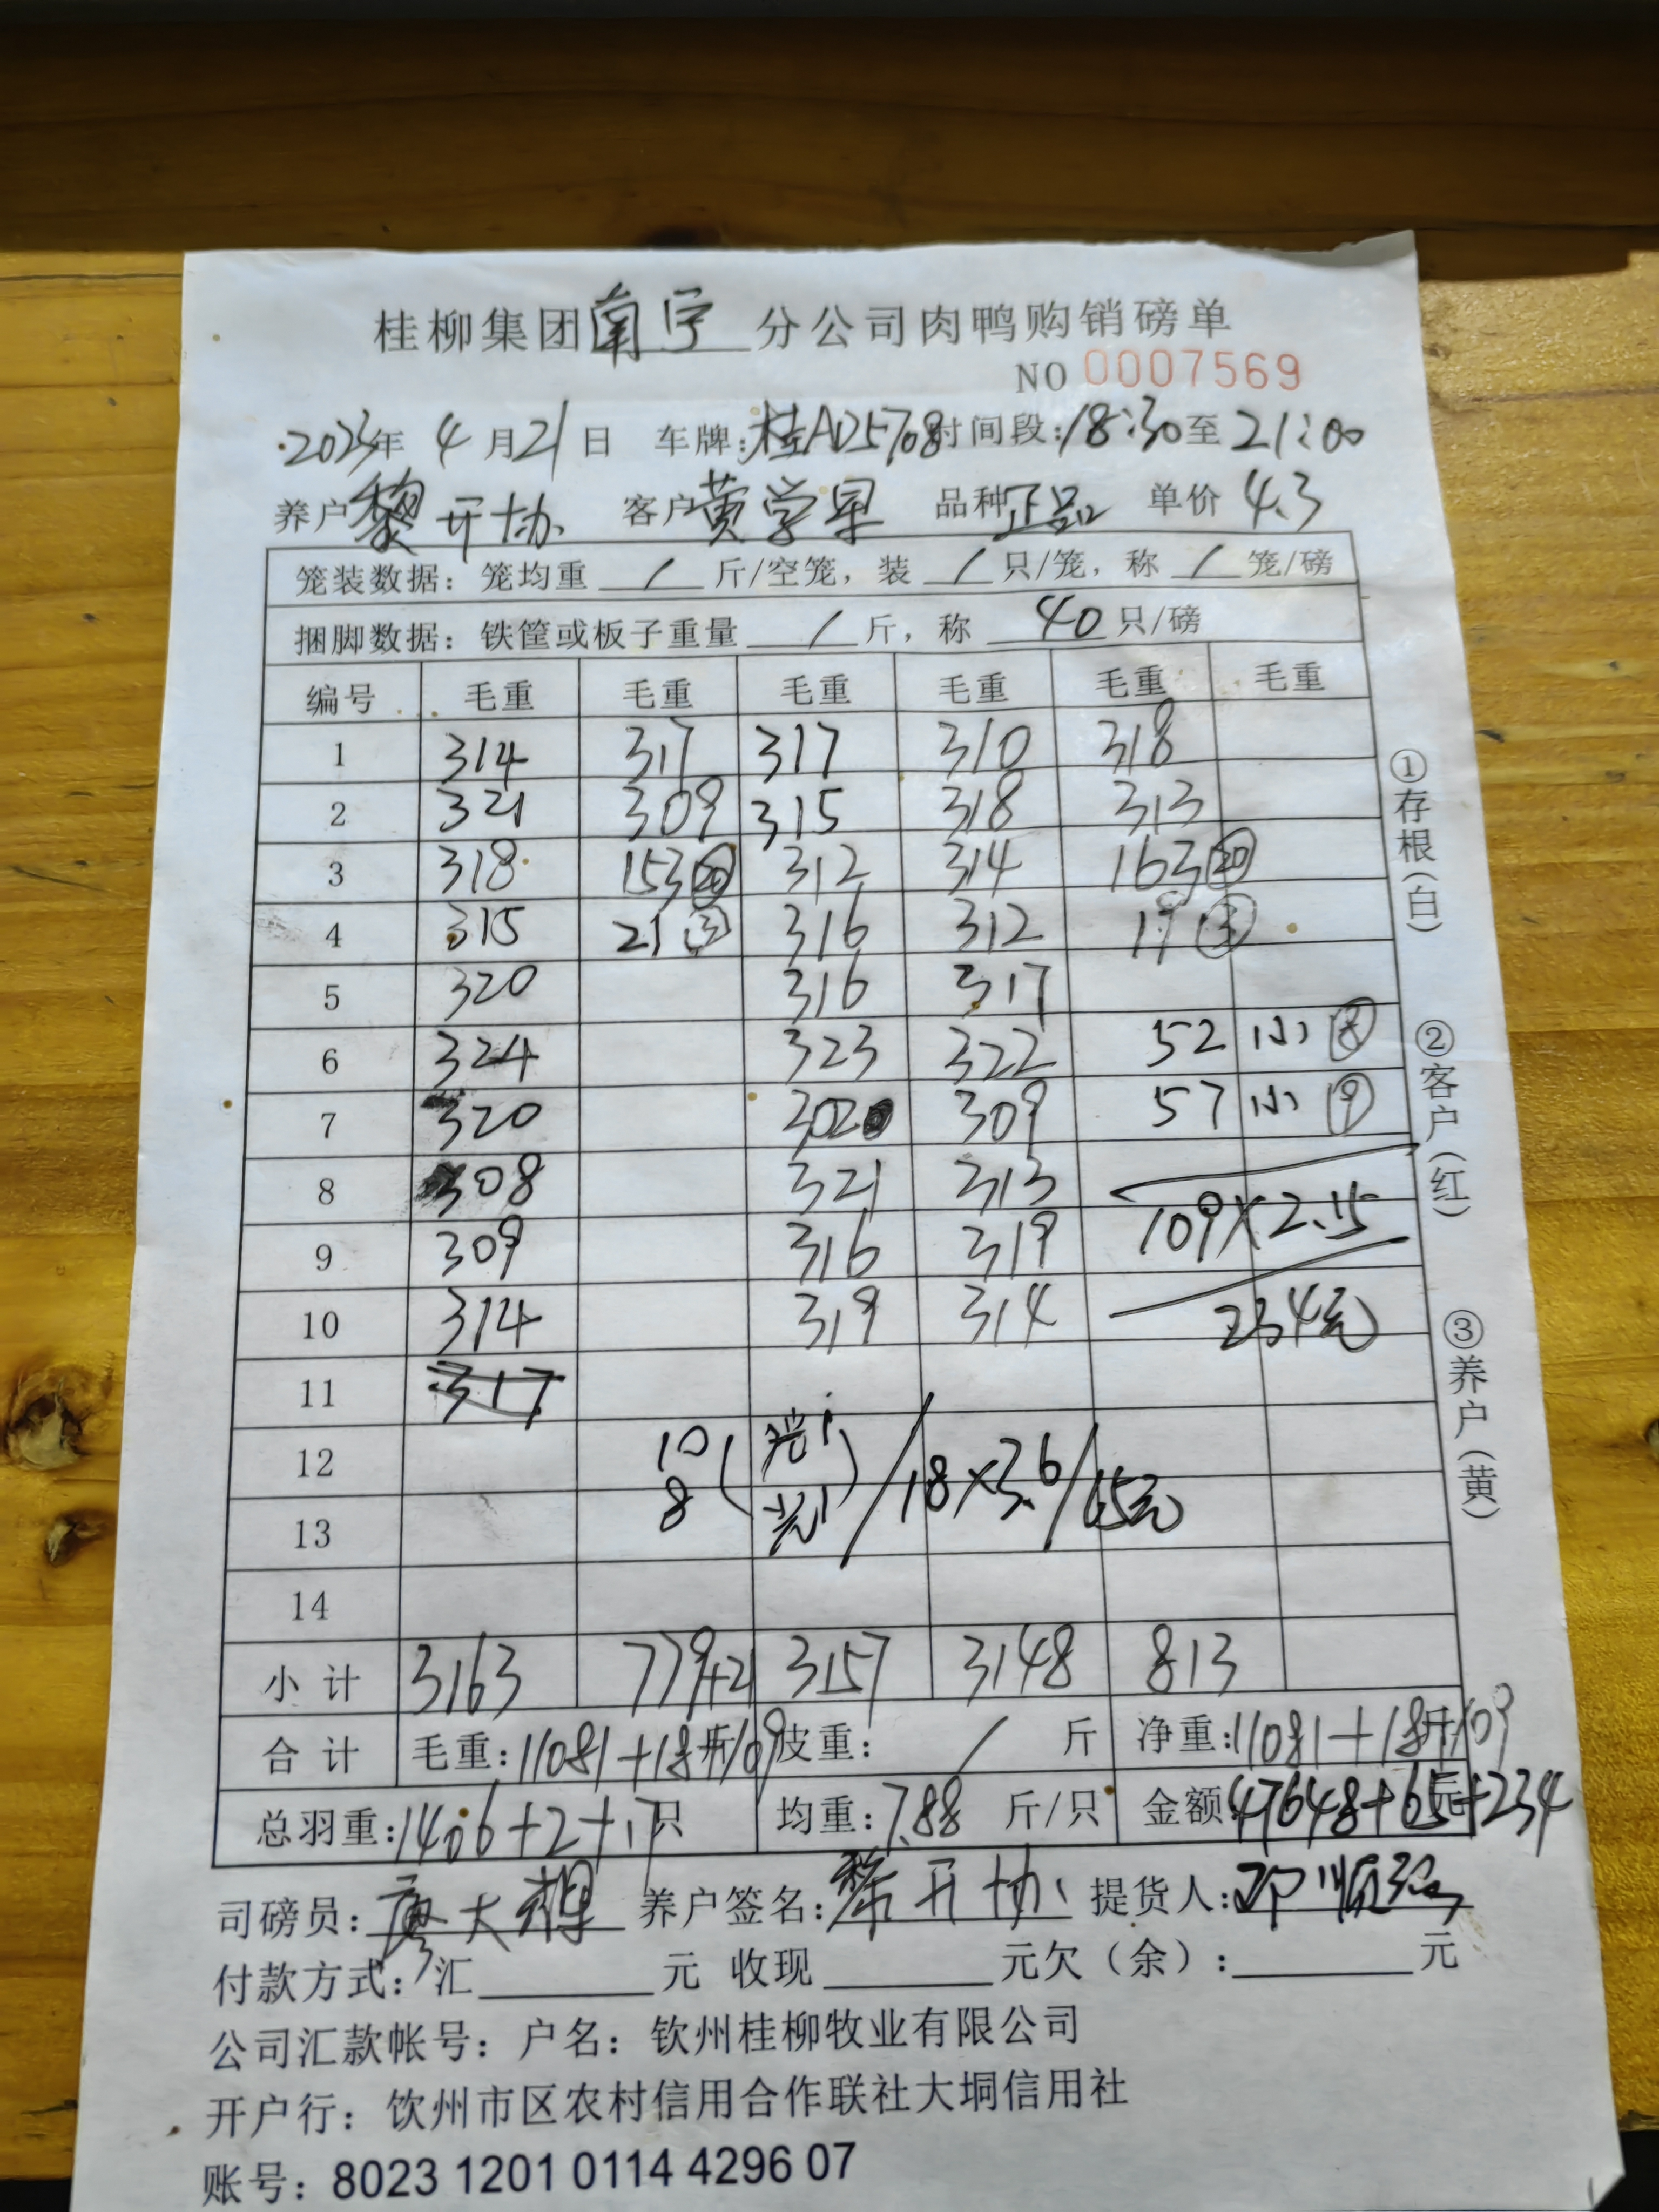 桂柳集团南宁分公司肉鸭购销磅单
NO 0007569
2023年 4月21日 车牌:桂AD5708 时间段:18:30至21:00
养户黎开协 客户黄学早 品种正品 单价4.3
笼装数据: 笼均重 / 斤/空笼, 装 / 只/笼, 称 / 笼/磅
捆脚数据: 铁筐或板子重量 / 斤, 称 40 只/磅
编号 毛重 毛重 毛重 毛重 毛重 毛重
1 314 317 317 310 318
2 321 309 315 318 313
3 318 153⑳ 312 314 163⑳
4 315 21③ 316 312 19
5 320 316 317
6 324 323 322 52 小⑧
7 320 302 309 57 小⑨
8 308 321 313
9 309 316 319 109×2.15
10 314 319 314 234元
11 317
12 10
13 8 /18×3.6/65元
14
小计 3163 779+21 3157 3148 813
合计 毛重:11081+18斤/109 皮重: / 斤 净重:11081+18斤/109
总羽重:1406+2+17只 均重:7.88 斤/只 金额:47648+65元+234
司磅员:廖大 养户签名:黎开协 提货人:邓顺
付款方式: 汇 元 收现 元欠(余): 元
公司汇款帐号: 户名: 钦州桂柳牧业有限公司
开户行: 钦州市区农村信用合作联社大垌信用社
账号: 8023 1201 0114 4296 07
①存根(白)
②客户(红)
③养户(黄)